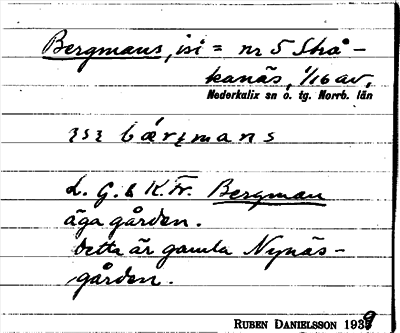 Bergmans, isi = nr 5 Skrå-
kanäs, 1/16 av,
Nederkalix sn o. tg. Norrb. län
ɩsɩ bǽrɩmans
L. G. & K. Fr. Bergman
äga gården.
Detta är gamla Nynäs-
gården.
RUBEN DANIELSSON 1939